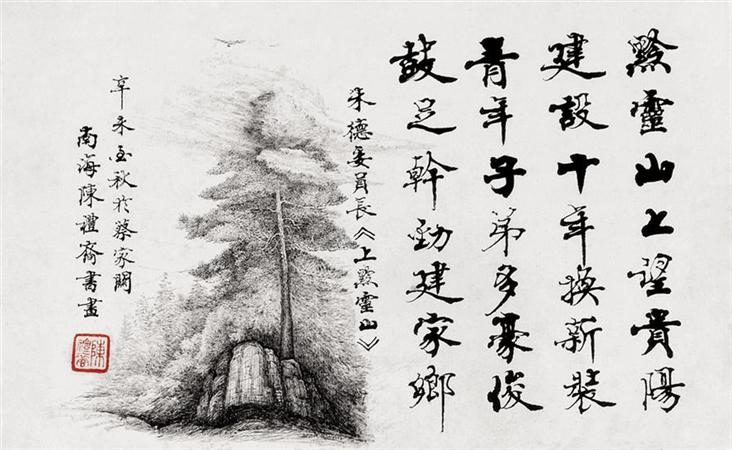 黔靈山上望貴陽
建設十年換新裝
青年子弟多豪俊
鼓足幹勁建家鄉
朱德委員長《上黔靈山》
辛未金秋於蔡家關
南海陳禮齋書畫